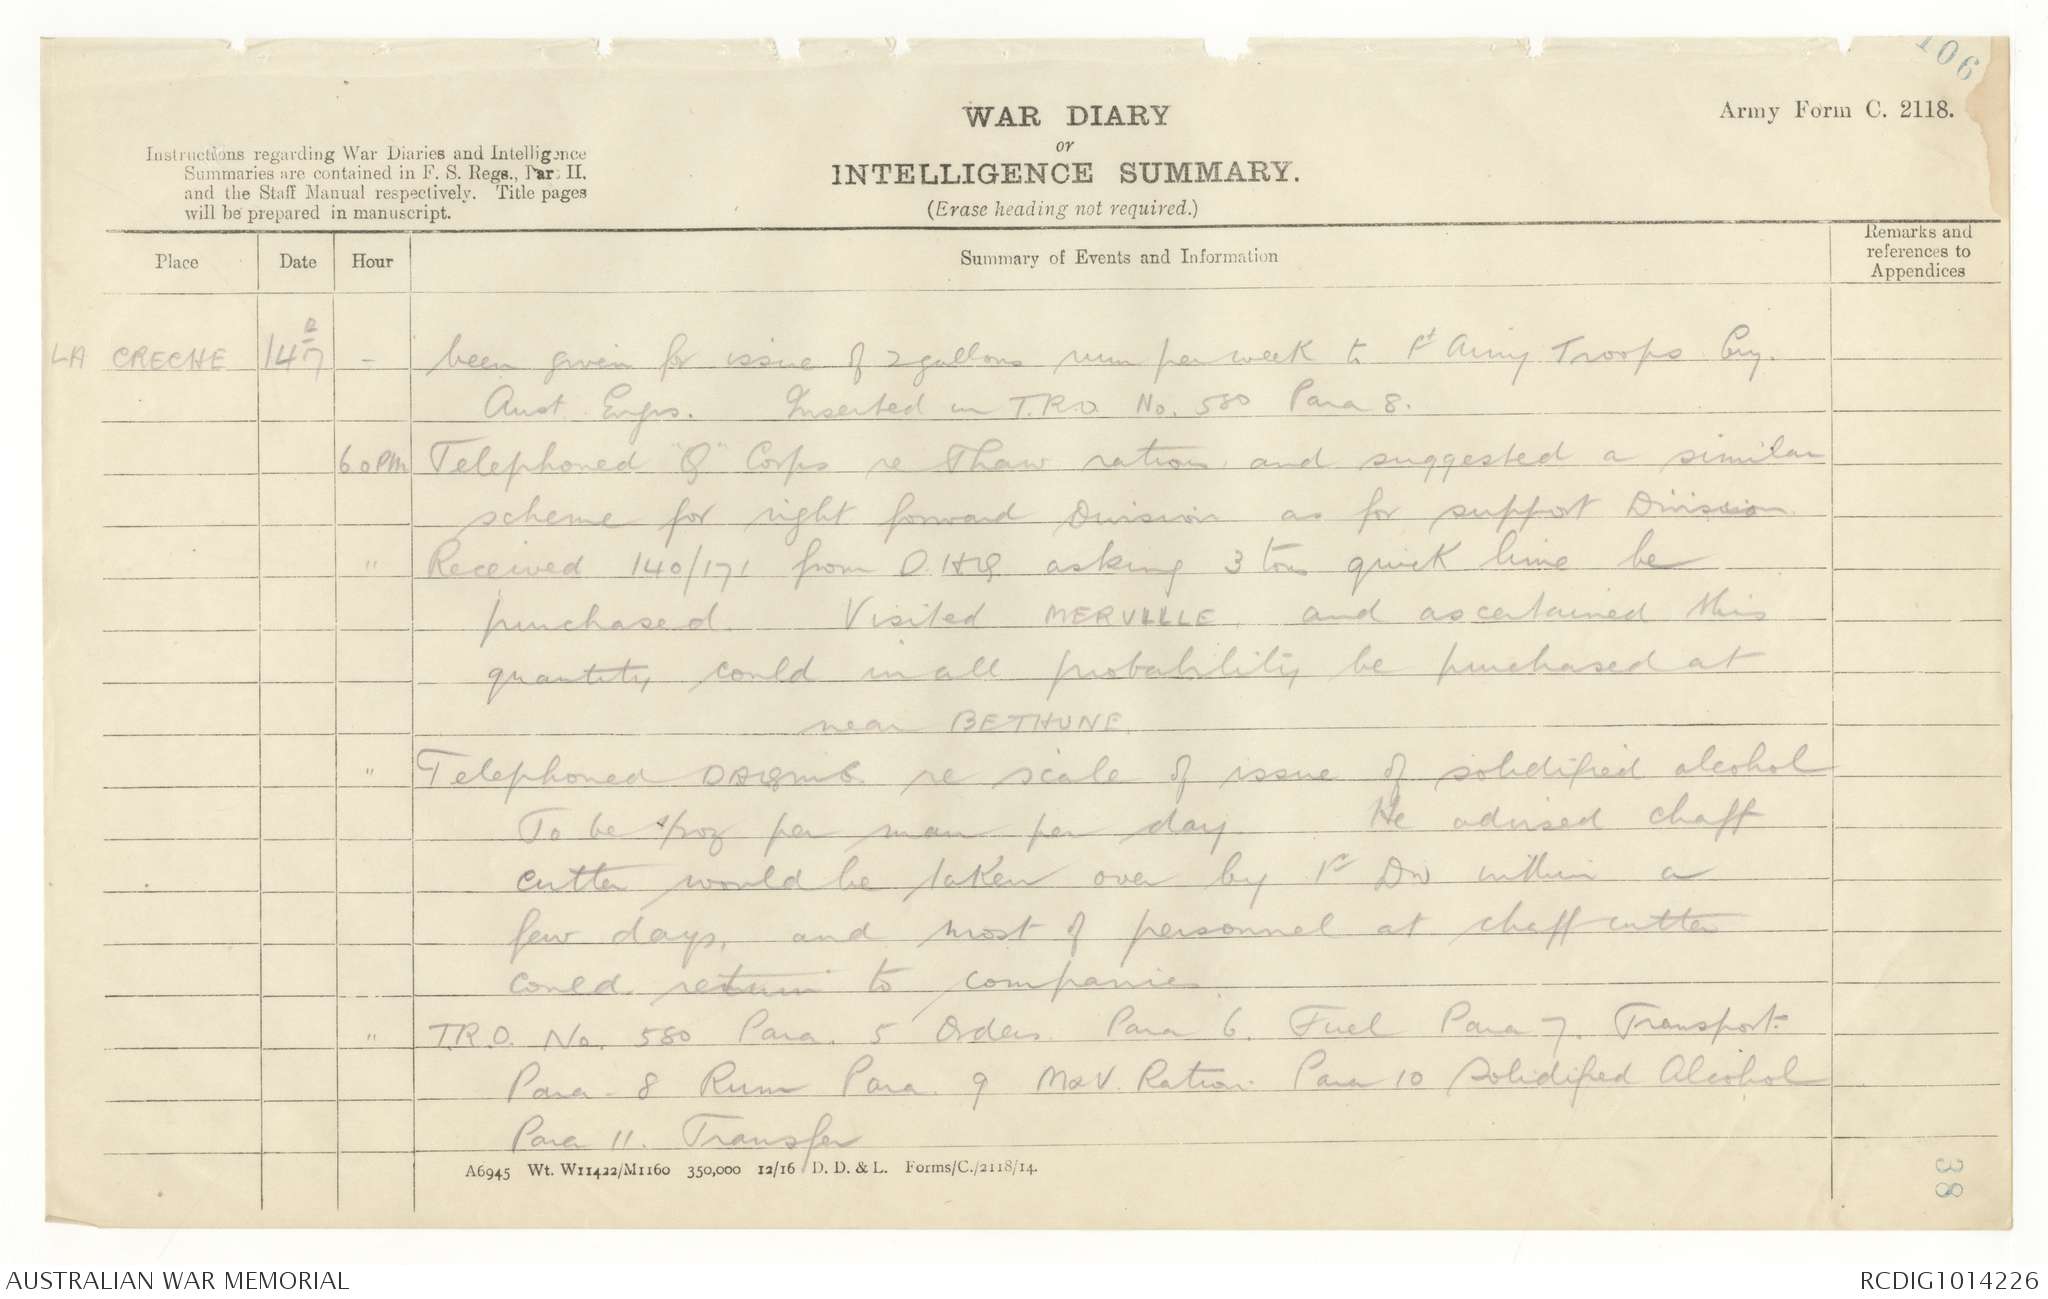 106
WAR DIARY
or
INTELLIGENCE SUMMARY.
(Erase heading not required.)
Army Form C. 2118.
Instructions regarding War Diaries and Intelligence
Summaries are contained in F. S. Regs., Part II.
and the Staff Manual respectively. Title pages
will be prepared in manuscript.
Place Date Hour Summary of Events and Information Remarks and references to Appendices
LA CRECHE 14 - been given for issue of 2 gallons rum per week to 1st Army Troops Coy.
Aust Engrs. Inserted in T.R.O. No. 580 Para 8.
6.0 PM Telephoned "Q" Corps re Thaw rations and suggested a similar
scheme for right forward Division as for support Division
" Received 140/171 from D.HQ asking 3 tons quick lime be
purchased. Visited MERVILLE and ascertained this
quantity could in all probability be purchased at
near BETHUNE.
" Telephoned DAQMG re scale of issue of solidified alcohol
To be per man per day. He advised chaff
cutter would be taken over by 1st Div within a
few days, and most of personnel at chaff cutter
could return to companies.
" T.R.O. No. 580 Para. 5 Orders. Para 6. Fuel Para 7. Transport.
Para 8 Rum Para. 9 M&V. Ration. Para 10 Solidified Alcohol
Para 11. Transfer
A6945 Wt. W11422/M1160 350,000 12/16 D. D. & L. Forms/C./2118/14.
38
AUSTRALIAN WAR MEMORIAL
RCDIG1014226